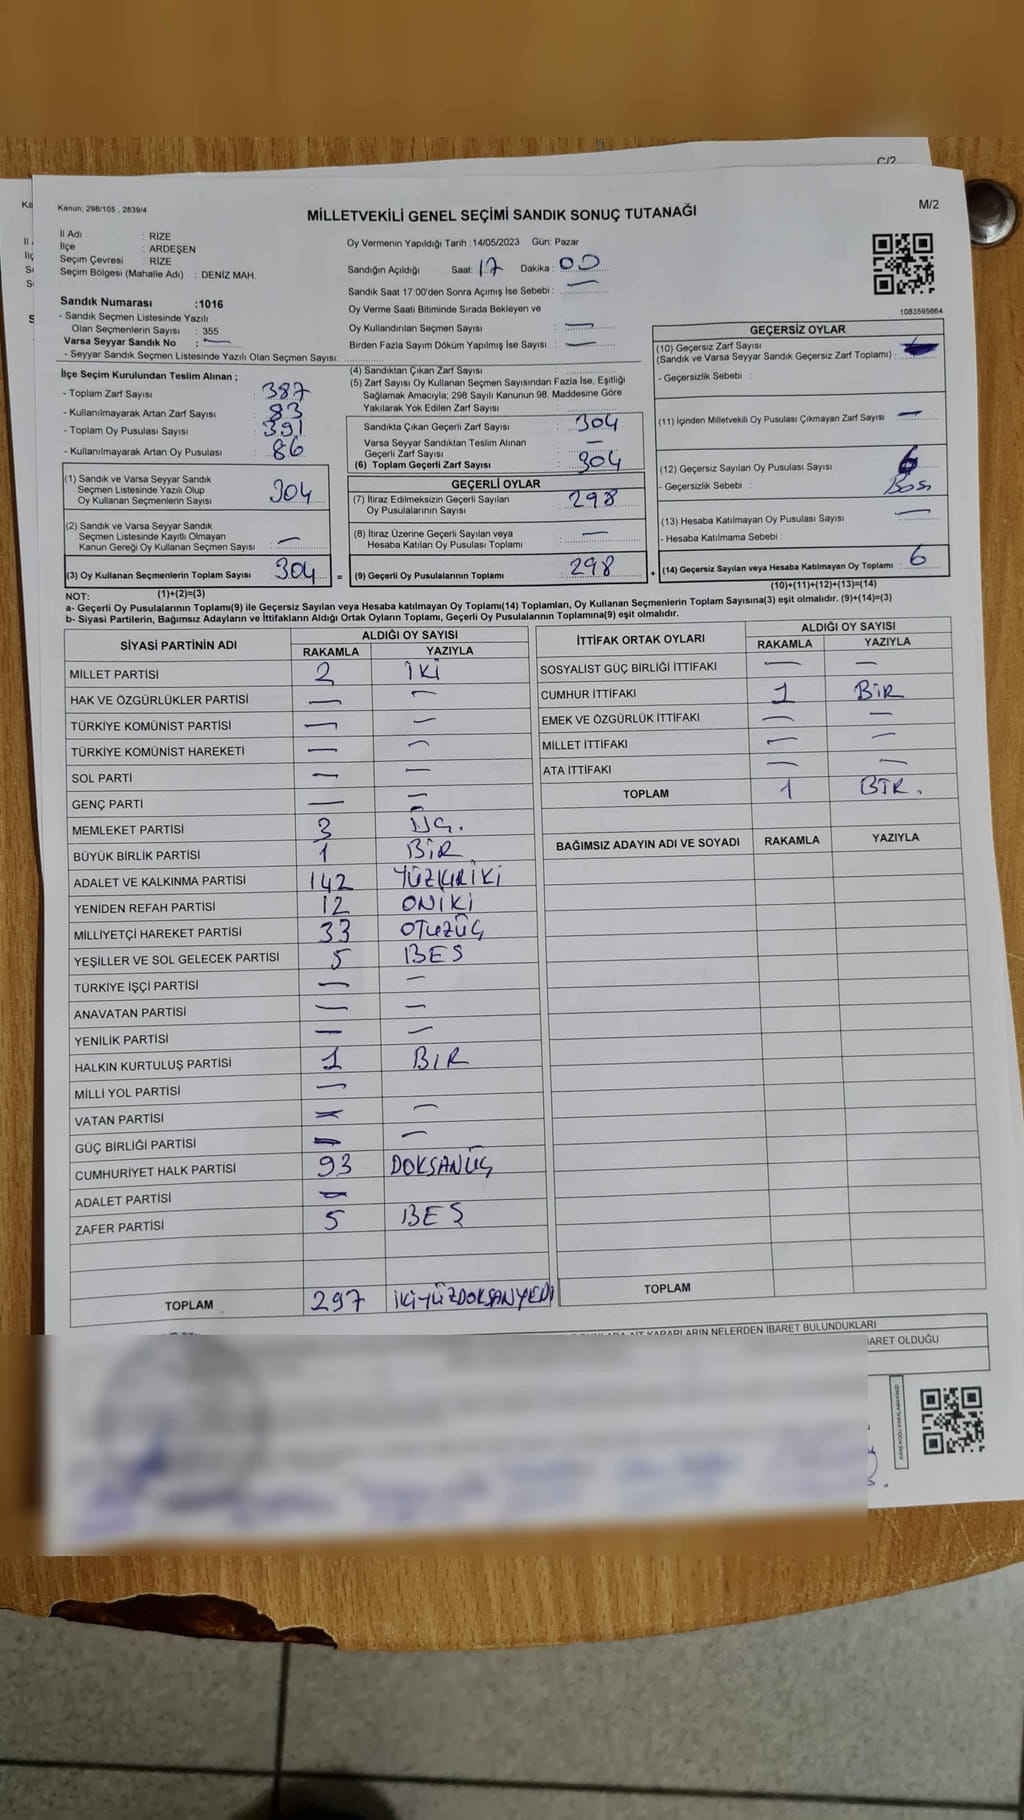 C/2
Kanun: 298/105 , 2839/4
MİLLETVEKİLİ GENEL SEÇİMİ SANDIK SONUÇ TUTANAĞI
M/2
İl Adı : RİZE
İlçe : ARDEŞEN
Seçim Çevresi : RİZE
Seçim Bölgesi (Mahalle Adı) : DENİZ MAH.
Oy Vermenin Yapıldığı Tarih :14/05/2023 Gün: Pazar
Sandığın Açıldığı Saat: 17 Dakika : 00
Sandık Saat 17:00'den Sonra Açımış İse Sebebi : —
Oy Verme Saati Bitiminde Sırada Bekleyen ve
Oy Kullandırılan Seçmen Sayısı : —
Birden Fazla Sayım Döküm Yapılmış İse Sayısı : —
1083595664
Sandık Numarası :1016
- Sandık Seçmen Listesinde Yazılı
Olan Seçmenlerin Sayısı : 355
Varsa Seyyar Sandık No : —
- Seyyar Sandık Seçmen Listesinde Yazılı Olan Seçmen Sayısı:
İlçe Seçim Kurulundan Teslim Alınan ;
- Toplam Zarf Sayısı : 387
- Kullanılmayarak Artan Zarf Sayısı : 83
- Toplam Oy Pusulası Sayısı : 391
- Kullanılmayarak Artan Oy Pusulası : 86
(1) Sandık ve Varsa Seyyar Sandık
Seçmen Listesinde Yazılı Olup
Oy Kullanan Seçmenlerin Sayısı : 304
(2) Sandık ve Varsa Seyyar Sandık
Seçmen Listesinde Kayıtlı Olmayan
Kanun Gereği Oy Kullanan Seçmen Sayısı : —
(3) Oy Kullanan Seçmenlerin Toplam Sayısı : 304
(1)+(2)=(3)
(4) Sandıktan Çıkan Zarf Sayısı :
(5) Zarf Sayısı Oy Kullanan Seçmen Sayısından Fazla İse, Eşitliği
Sağlamak Amacıyla; 298 Sayılı Kanunun 98. Maddesine Göre
Yakılarak Yok Edilen Zarf Sayısı :
Sandıkta Çıkan Geçerli Zarf Sayısı : 304
Varsa Seyyar Sandıktan Teslim Alınan
Geçerli Zarf Sayısı : —
(6) Toplam Geçerli Zarf Sayısı : 304
GEÇERLİ OYLAR
(7) İtiraz Edilmeksizin Geçerli Sayılan
Oy Pusulalarının Sayısı : 298
(8) İtiraz Üzerine Geçerli Sayılan veya
Hesaba Katılan Oy Pusulası Toplamı : —
= (9) Geçerli Oy Pusulalarının Toplamı : 298
GEÇERSİZ OYLAR
(10) Geçersiz Zarf Sayısı
(Sandık ve Varsa Seyyar Sandık Geçersiz Zarf Toplamı) :
- Geçersizlik Sebebi :
(11) İçinden Milletvekili Oy Pusulası Çıkmayan Zarf Sayısı : —
(12) Geçersiz Sayılan Oy Pusulası Sayısı : 6
- Geçersizlik Sebebi : Boş
(13) Hesaba Katılmayan Oy Pusulası Sayısı : —
- Hesaba Katılmama Sebebi :
+ (14) Geçersiz Sayılan veya Hesaba Katılmayan Oy Toplamı : 6
(10)+(11)+(12)+(13)=(14)
NOT:
a- Geçerli Oy Pusulalarının Toplamı(9) ile Geçersiz Sayılan veya Hesaba katılmayan Oy Toplamı(14) Toplamları, Oy Kullanan Seçmenlerin Toplam Sayısına(3) eşit olmalıdır. (9)+(14)=(3)
b- Siyasi Partilerin, Bağımsız Adayların ve İttifakların Aldığı Ortak Oyların Toplamı, Geçerli Oy Pusulalarının Toplamına(9) eşit olmalıdır.
SİYASİ PARTİNİN ADI ALDIĞI OY SAYISI
RAKAMLA YAZIYLA
MİLLET PARTİSİ 2 İKİ
HAK VE ÖZGÜRLÜKLER PARTİSİ — —
TÜRKİYE KOMÜNİST PARTİSİ — —
TÜRKİYE KOMÜNİST HAREKETİ — —
SOL PARTİ — —
GENÇ PARTİ — —
MEMLEKET PARTİSİ 3 ÜÇ.
BÜYÜK BİRLİK PARTİSİ 1 BİR
ADALET VE KALKINMA PARTİSİ 142 YÜZKIRIKİ
YENİDEN REFAH PARTİSİ 12 ONİKİ
MİLLİYETÇİ HAREKET PARTİSİ 33 OTUZÜÇ
YEŞİLLER VE SOL GELECEK PARTİSİ 5 BES
TÜRKİYE İŞÇİ PARTİSİ — —
ANAVATAN PARTİSİ — —
YENİLİK PARTİSİ — —
HALKIN KURTULUŞ PARTİSİ 1 BIR
MİLLİ YOL PARTİSİ —
VATAN PARTİSİ — —
GÜÇ BİRLİĞİ PARTİSİ — —
CUMHURİYET HALK PARTİSİ 93 DOKSANÜÇ
ADALET PARTİSİ —
ZAFER PARTİSİ 5 BEŞ
TOPLAM 297 İKİYÜZDOKSANYEDİ
İTTİFAK ORTAK OYLARI ALDIĞI OY SAYISI
RAKAMLA YAZIYLA
SOSYALIST GÜÇ BİRLİĞİ İTTİFAKI — —
CUMHUR İTTİFAKI 1 BİR
EMEK VE ÖZGÜRLÜK İTTİFAKI — —
MİLLET İTTİFAKI — —
ATA İTTİFAKI — —
TOPLAM 1 BİR.
BAĞIMSIZ ADAYIN ADI VE SOYADI RAKAMLA YAZIYLA
TOPLAM
KARARLARIN NELERDEN İBARET BULUNDUKLARI
BARET OLDUĞU